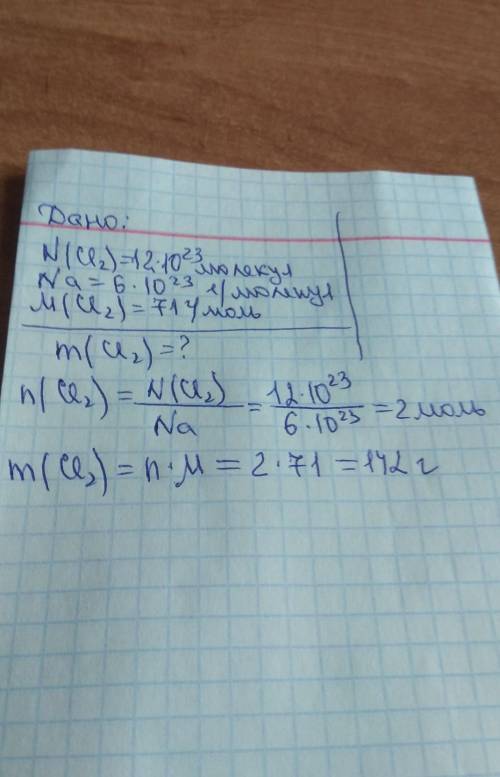 Дано:
N(Cl₂)=12·10²³ молекул
Na = 6·10²³ молекул
M(Cl₂) = 71 г/моль
m(Cl₂)=?
n(Cl₂) = N(Cl₂)/Na = 12·10²³/6·10²³ = 2 моль
m(Cl₂) = n·M = 2·71 = 142 г